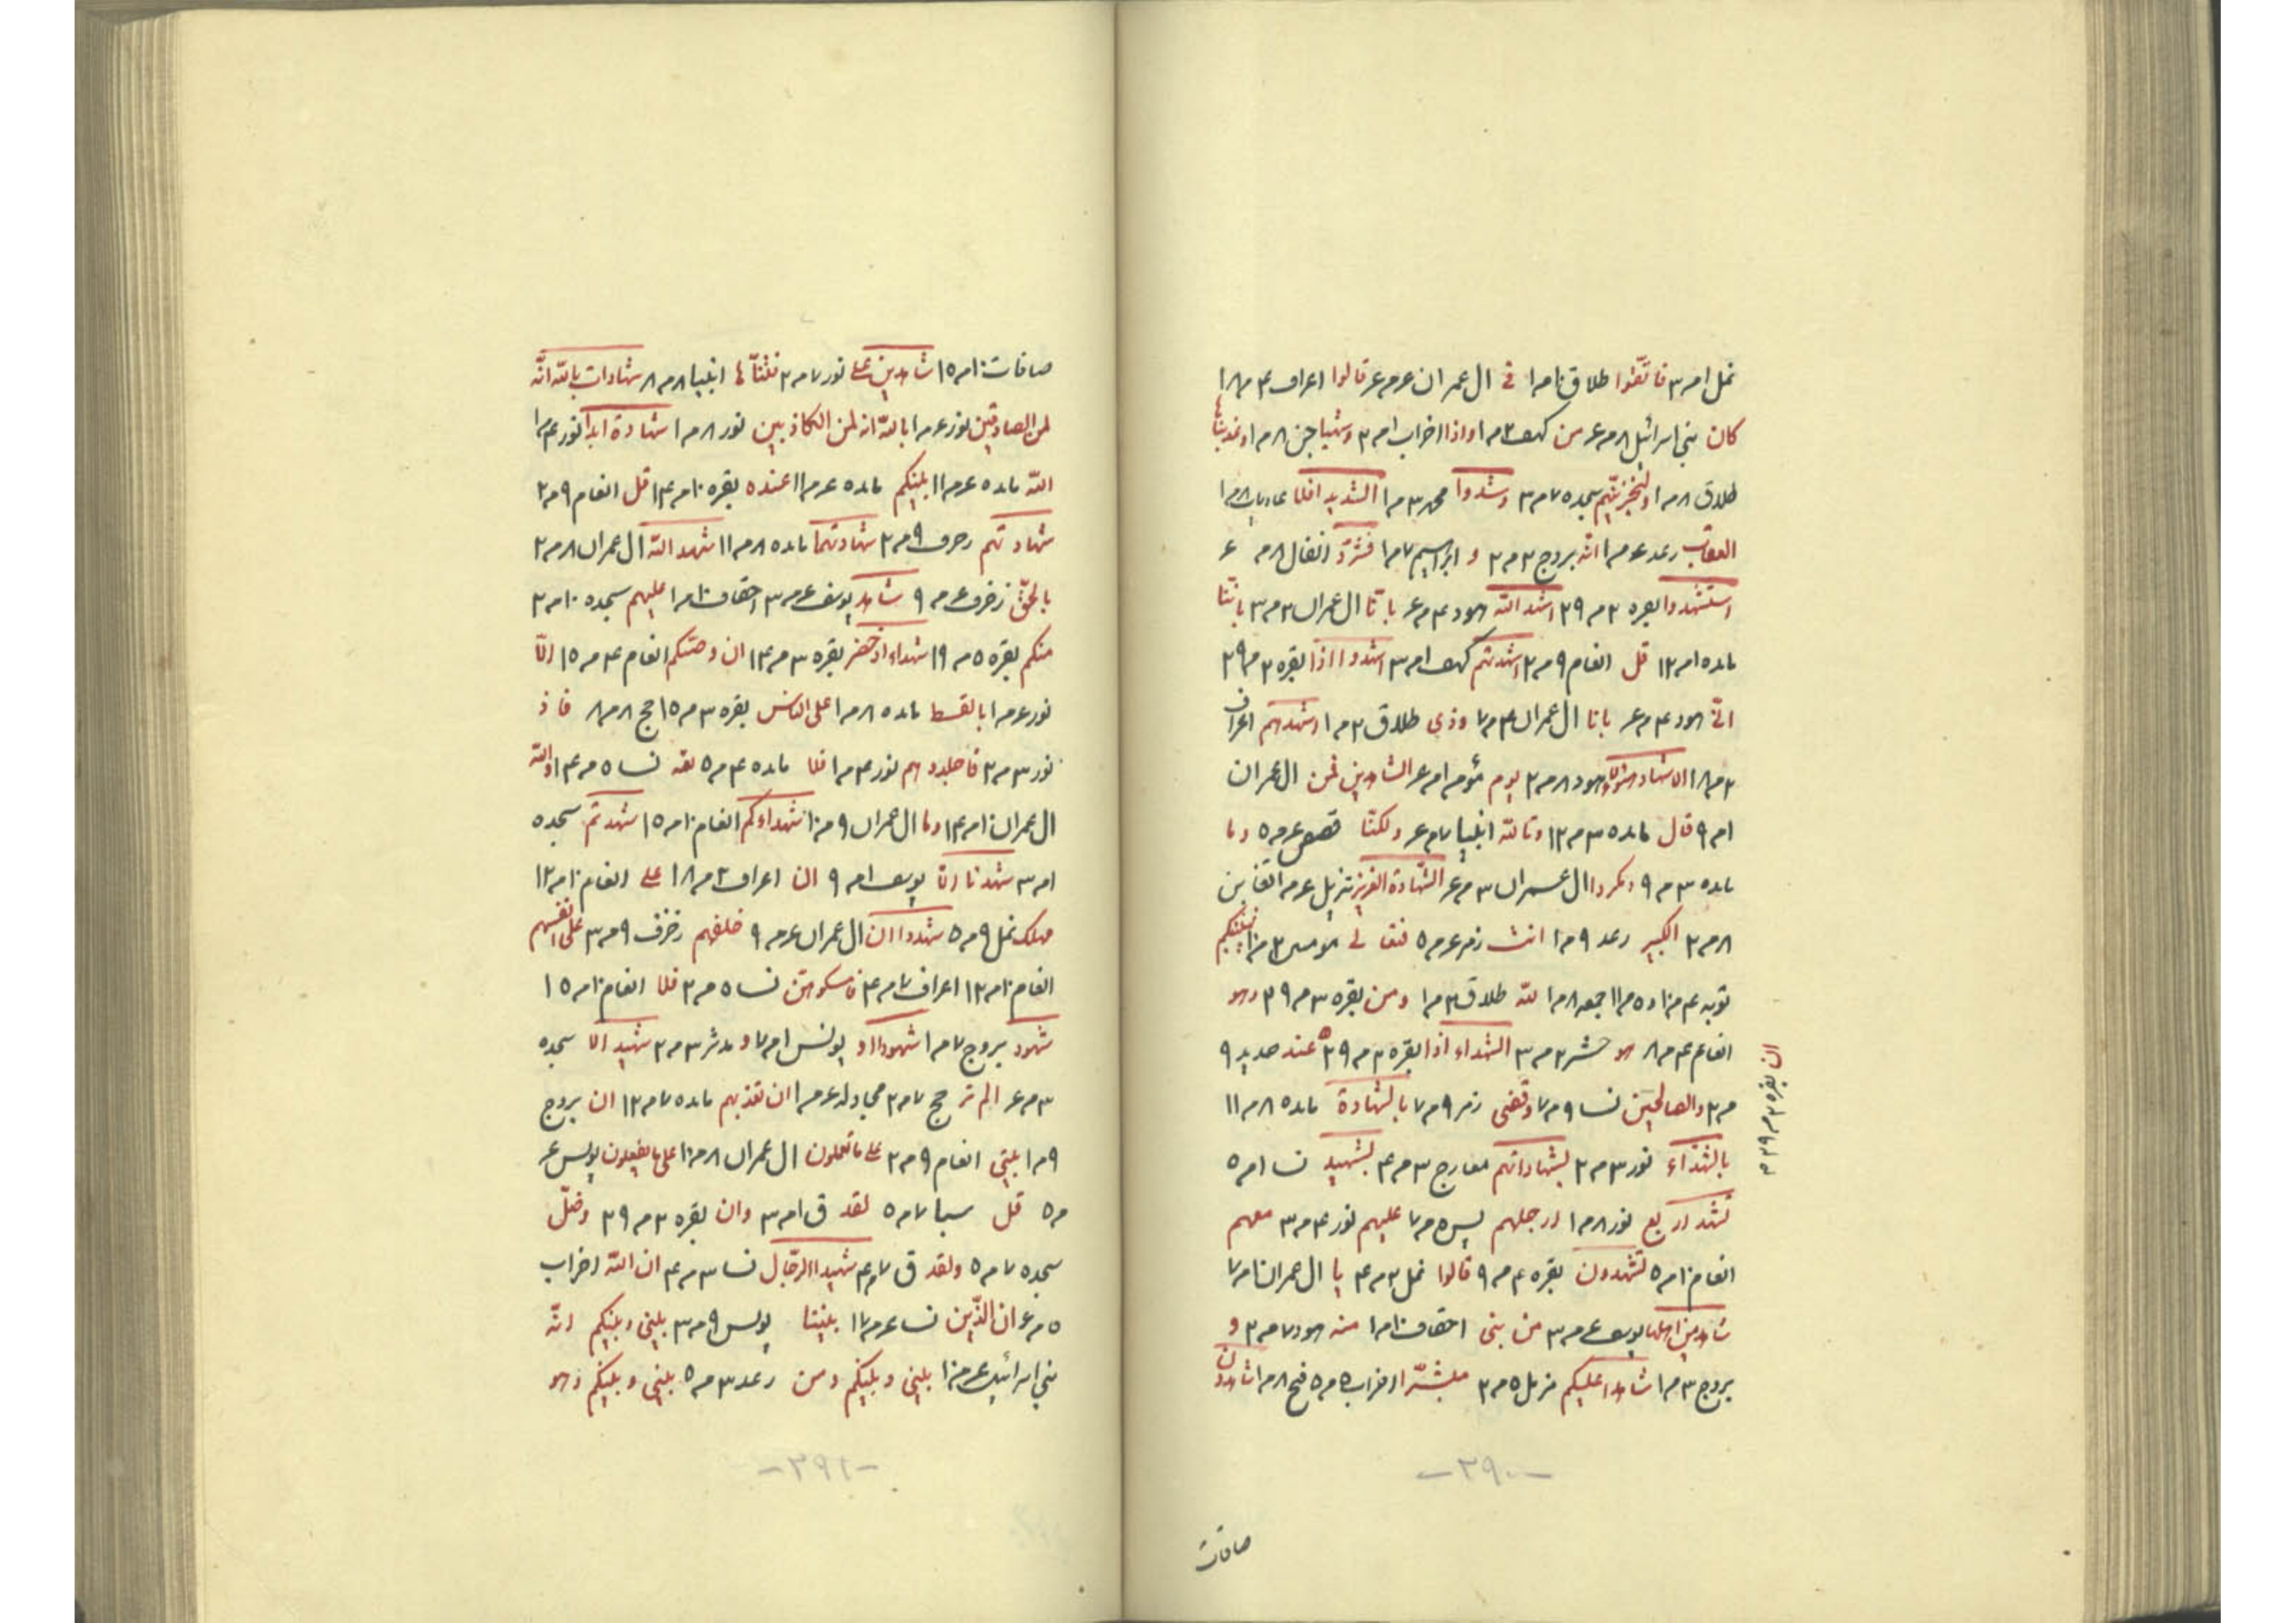 نمل ام ٣ فاتقوا طلاق ١٠م١ في ال عمران عم ع قالوا اعراف ٤م١٨
كان بني اسرائيل ٨م ع من كهف ٢م١ واذا احزاب ١م٢ وشهبا جن ٨م١
طلاق ٨م١ ولنجزينهم سجده ٧م٣ وشدوا محمد ٣م١ الشديد افلا عاديات ٨م١
العقاب رعد عم١ انه بروج ٢م٢ و ابراهيم ٧م١ فشرد انفال ٨م ع
استشهدوا بقره ٢م٣٩ اشهد الله هود ٤م ع بانا ال عمران ٢م٣ باننا
مائده ١م١٢ قل انعام ٩م٢ اشهدتهم كهف ١م٣ اشهدوا اذا بقره ٢م٣٩
اني هود ٤م ع بانا ال عمران ٤م٧ وذي طلاق ٢م١ اشهدهم اعراف
٢م١٨ الاشهاد هؤلاء هود ٨م٢ يوم مؤمن ام ع الشاهدين فمن ال عمران
ام٩ قال مائده ٣م١٢ وتالله انبيا ٧م ع ولكنا قصص عم٥ وما
مائده ٣م٩ ومكروا ال عمران ٣م ع الشهادة العزيز تنزيل عم١ تغابن
٨م٢ الكبير رعد ٩م١ انت زمر عم٥ فتعالى مؤمنين
توبه ٤م١٠ و ٥م١١ جمعه ٨م١ لله طلاق ٢م١ ومن بقره ٣م٣٩ وهو
انعام ٤م٨ هو حشر ٢م٣ الشهداء اذا بقره ٢م٣٩ عند حديد ٩
م٢ والصالحين نسا ٩م٧ وقضى زمر ٩م٧ بالشهادة مائده ٨م١١
بالشهداء نور ٣م٢ بشهاداتهم معارج ٣م٤ بشهيد نسا ١م٥
تشهد اربع نور ٨م١ ارجلهم يس ٥م٧ عليهم نور ٤م٣ معهم
انعام ١٠م٥ تشهدون بقره ٤م٩ قالوا نمل ٢م٤ يا ال عمران ١٠م٧
شاهد من اهلها يوسف عم٣ من بني احقاف ١٠م١ منه هود ٧م٢ و
بروج ٣م١ شاهدا عليكم مزمل ٥م٢ مبشرا احزاب ٥م٥ فتح ٨م١ شاهدون
ان بقره ٢م٣٩
-٢٩٠-
صافات
صافات ١٠م١٥ شاهدين على نور ٧م٢ انبيا ٨م٨ شهادات بالله انه
لمن الصادقين نور عم١ بالله انه لمن الكاذبين نور ٨م١ شهادة ابدا نور ٤م١
الله مائده عم١١ بينكم مائده عم١١ عنده بقره ١٠م١٤ قل انعام ٩م٢
شهادتهم زخرف ٩م٢ شهادتهما مائده ٨م١١ شهد الله ال عمران ٨م٢
بالحق زخرف عم٩ شاهد يوسف عم٣ احقاف ١٠م١ عليهم سجده ١٠م٢
منكم بقره ٥م١٩ شهداء اذ حضر بقره ٣م١٤ ان وصيكم انعام ٤م١٥ الا
نور عم١ بالقسط مائده ٨م١ على الناس بقره ٣م١٥ حج ٨م٨ فاذ
نور ٣م٢ فاجلدوهم نور ٤م١ فلا مائده ٤م٥ نسا ٥م١٤ والله
ال عمران ١٠م١٤ وما ال عمران ٩م١٠ شهداءكم انعام ١٠م١٥ شهدتم سجده
ام٣ شهدنا انا يوسف ام٩ ان اعراف ٢م١٨ على انعام ١٠م١٢
مهلك نمل ٩م٥ شهدوا ان ال عمران عم٩ خلقهم زخرف ٩م٣ على انفسهم
انعام ١٠م١٢ اعراف ٧م٤ فامسكوهن نسا ٥م٢ فلا انعام ١٠م١٥
شهود بروج ٧م١ شهودا او يونس ١م٧ و مدثر ٣م٢ شهيد الا سجده
٣م ع الم تر حج ٧م٢ مجادله عم١ ان تعذبهم مائده ٧م١٢ ان بروج
٩م١ بيني انعام ٩م٢ على ما تعملون ال عمران ٨م١٠ على ما يفعلون يونس ع
م٥ قل سبا ٧م٥ لقد ق ١م٣ وان بقره ٢م٣٩ وضل
سجده ٧م٥ ولقد ق ٧م٤ شهيدا الرجال نسا ٣م٤ ان الله احزاب
٥م ع ان الذين نسا عم١٧ بيننا يونس ٩م٣ بيني وبينكم انه
بني اسرائيل عم١٠ بيني وبينكم ومن رعد ٣م٥ بيني وبينكم وهو
-٢٩١-